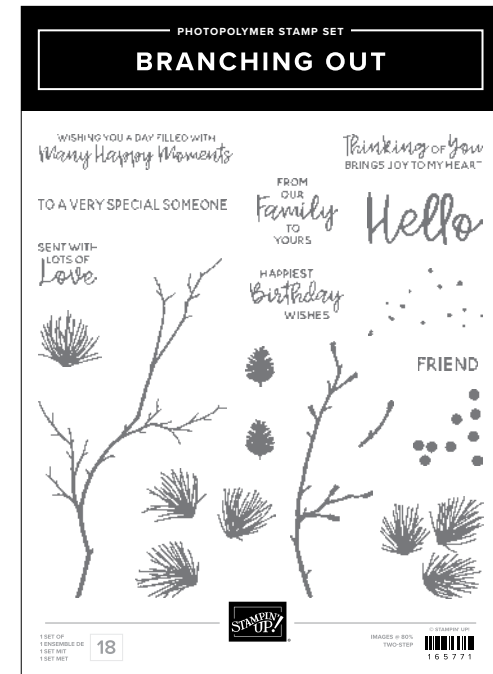 PHOTOPOLYMER STAMP SET
BRANCHING OUT
WISHING YOU A DAY FILLED WITH
Many Happy Moments
Thinking OF You
BRINGS JOY TO MY HEART
TO A VERY SPECIAL SOMEONE
FROM
OUR
Family
TO
YOURS
Hello
SENT WITH
LOTS OF
Love
HAPPIEST
Birthday
WISHES
FRIEND
STAMPIN' UP!®
1 SET OF
1 ENSEMBLE DE
1 SET MIT
1 SET MET
18
IMAGES @ 80%
TWO-STEP
© STAMPIN' UP!
165771